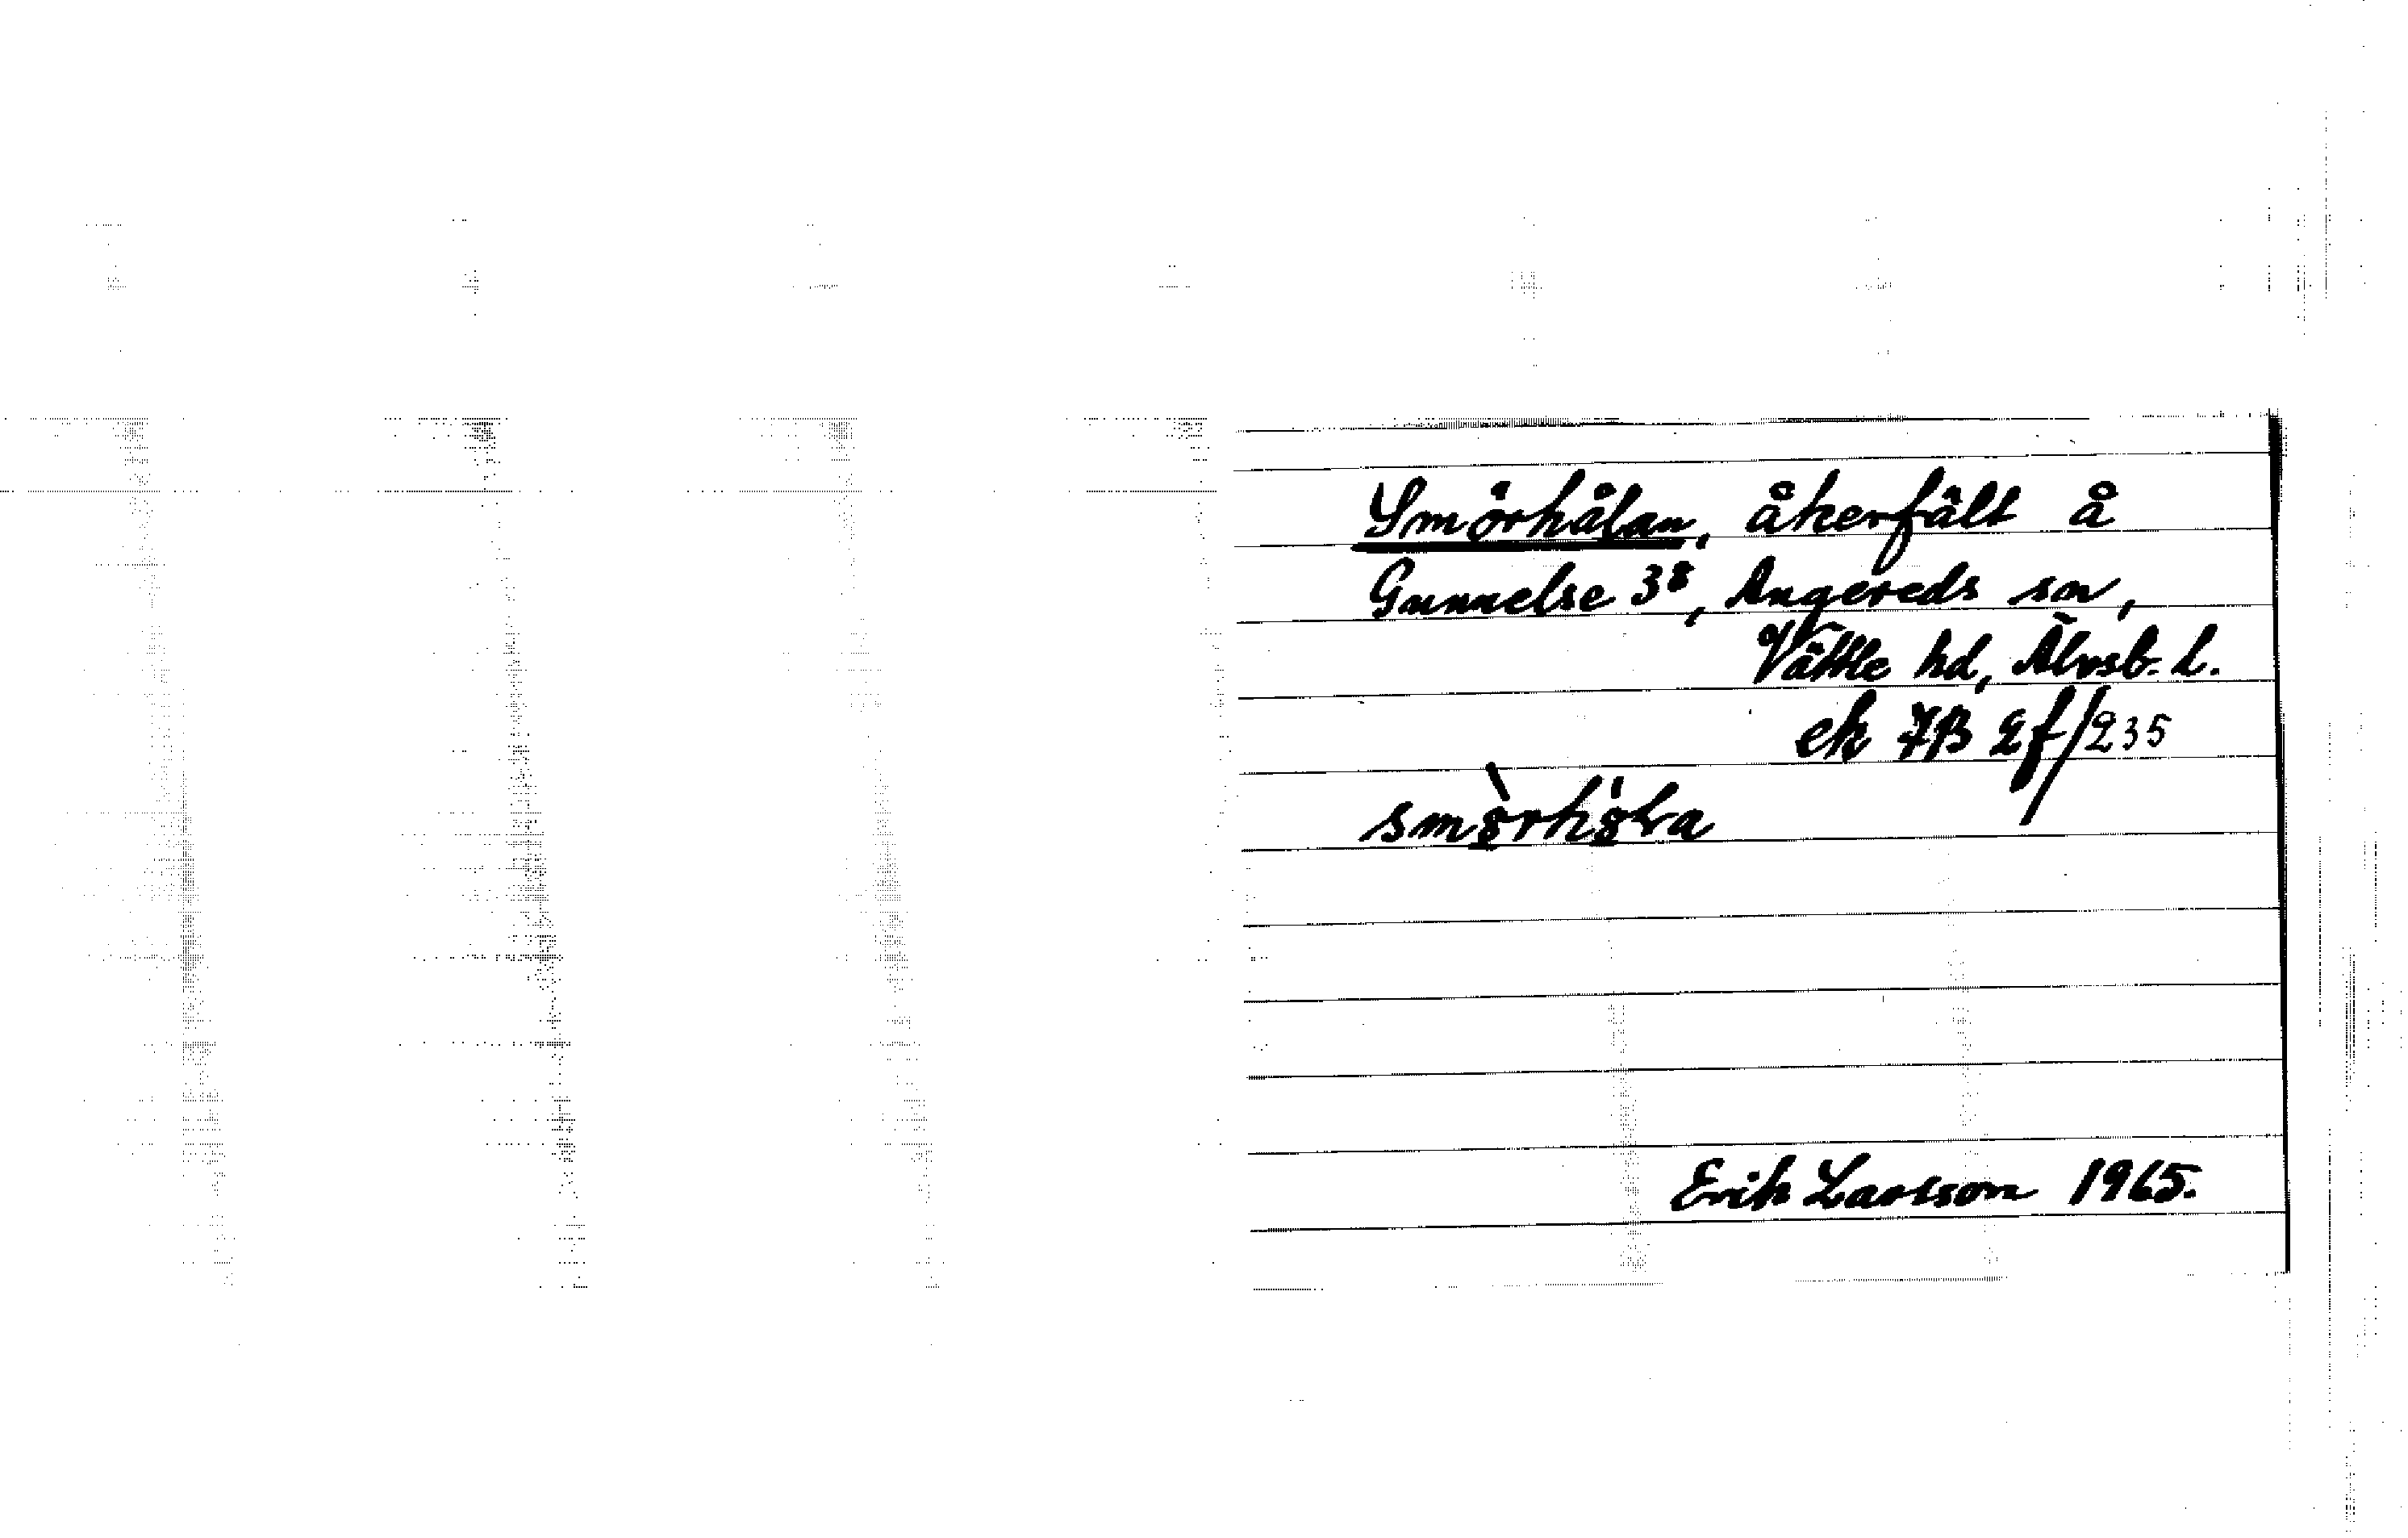 Smörhålan, åkerfält å
Gunnelse 3⁸, Angereds sn,
Vättle hd, Älvsb. L.
ek 7B 2f/235
Erik Larsson 1965.